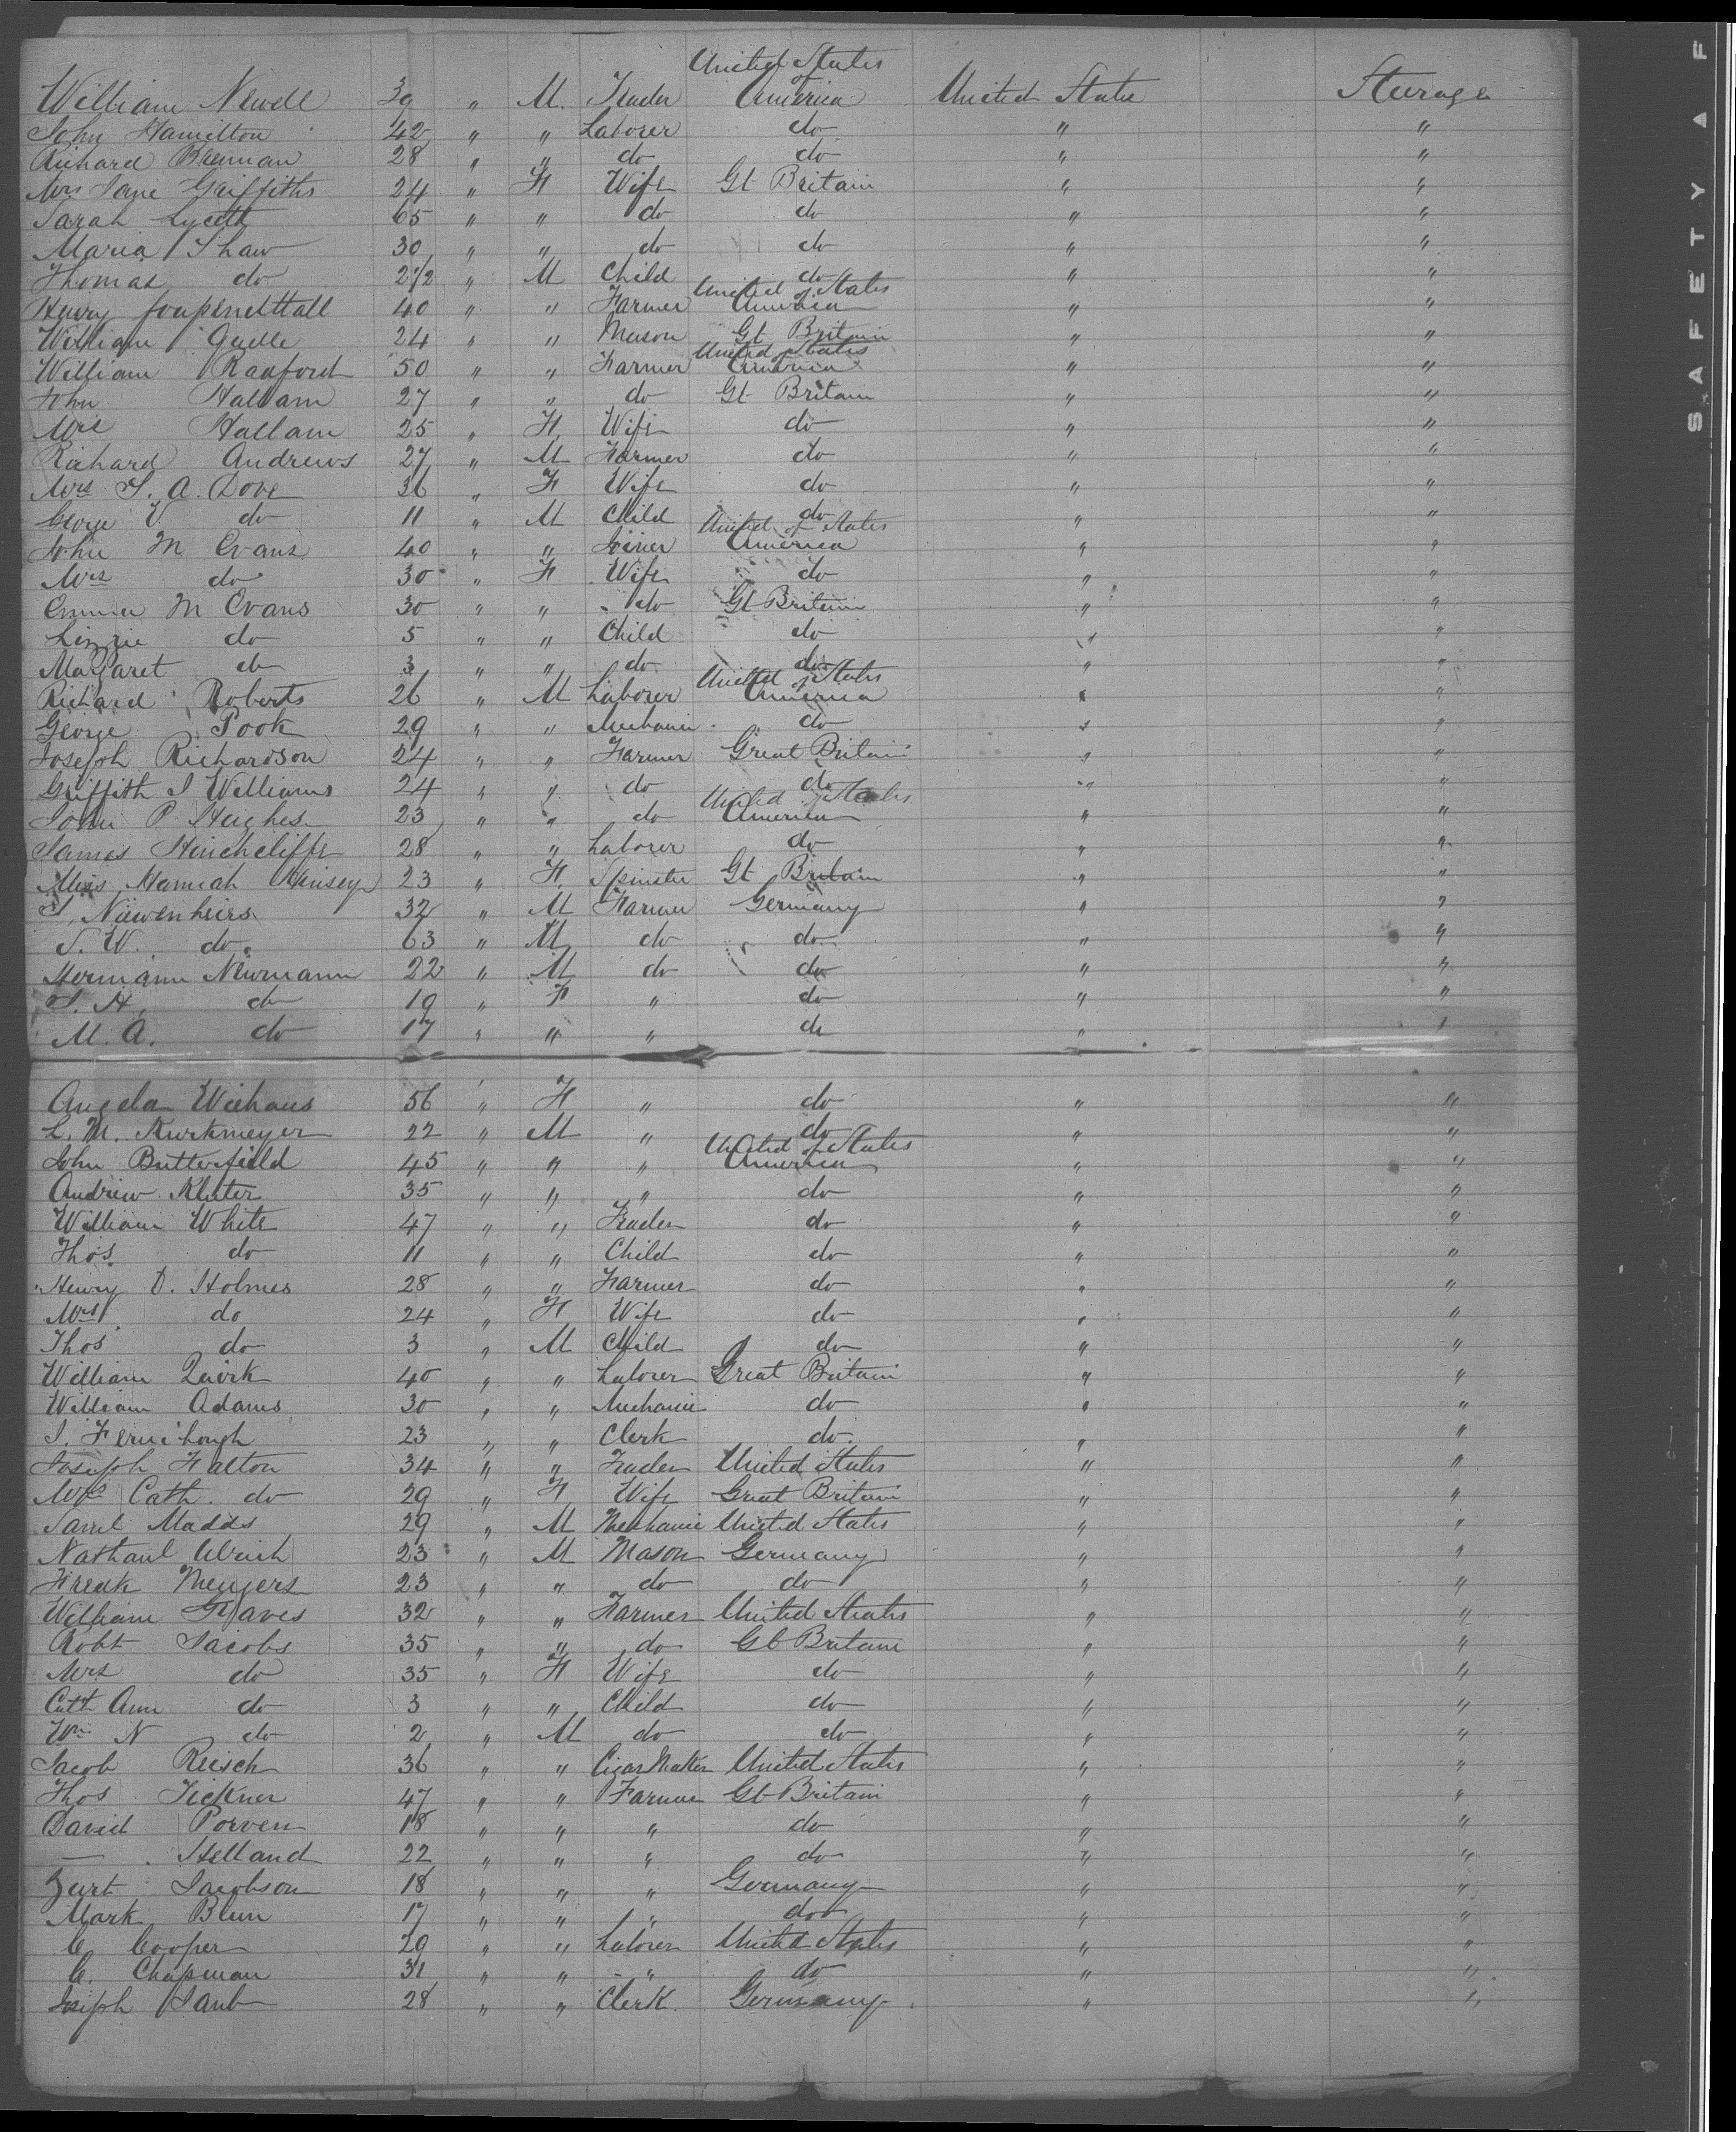 William Newell 39 " M. Trader United States of America United States Steerage
John Hamilton 42 " " Laborer do " "
Richard Brennan 28 " " do do " "
Mrs Jane Griffiths 24 " F Wife Gt Britain " "
Sarah Lycett 65 " " do do " "
Maria Shaw 30 " " do do " "
Thomas do 2 1/2 " M Child do " "
Henry 40 " " Farmer United States of America " "
William Quelle 24 " " Mason Gt Britain " "
William Raxford 50 " " Farmer United States of America " "
John Hallam 27 " " do Gt Britain " "
Mrs Hallam 25 " F. Wife do " "
Richard Andrews 27 " M Farmer do " "
Mrs S. A. Dove 36 " F Wife do " "
George V. do 11 " M Child do " "
John M Evans 40 " " Joiner United States of America " "
Mrs do 30 " F Wife do " "
Emma M Evans 30 " " do Gt Britain " "
Lizzie do 5 " " Child do " "
Margaret do 3 " " do do " "
Richard Roberts 26 " M Laborer United States of America " "
George Pook 29 " " Mechanic do " "
Joseph Richardson 24 " " Farmer Great Britain " "
Griffith J Williams 24 " " do do " "
John P. Hughes 23 " " do United States of America " "
James Hinchcliffe 28 " " Laborer do " "
Miss Hannah Kinsey 23 " F. Spinster Gt Britain " "
J. Niewenheirs 32 " M Farmer Germany " "
J. W. do. 63 " M do do " "
Hermann Newmann 22 " M do do " "
S. H. do 19 " F " do " "
M. A. do 17 " " " do " "
Angela Wiehaus 56 " F " do " "
L. M. Kurkmeyer 22 " M " do " "
John Butterfield 45 " " " United States of America " "
Andrew Kluter 35 " " " do " "
William White 47 " " Trader do " "
Thos. do 11 " " Child do " "
Henry D. Holmes 28 " " Farmer do " "
Mrs do 24 " F Wife do " "
Thos do 3 " M Child do " "
William Quirk 40 " " Laborer Great Britain " "
William Adams 30 " " Mechanic do " "
J. Fernihough 23 " " Clerk do. " "
Joseph Falton 34 " " Trader United States " "
Mrs Cath. do 29 " F Wife Great Britain " "
Saml Madds 29 " M Mechanic United States " "
Nathanl Ulrich 23 " M Mason Germany " "
Mengers 23 " " do do " "
William Graves 32 " " Farmer United States " "
Robt Jacobs 35 " " do Gt Britain " "
Mrs do 35 " F Wife do " "
Cath Ann do 3 " " Child do " "
Wm N do 2 " M do do " "
Jacob Reisch 36 " " Cigar Maker United States " "
Thos Tickner 47 " " Farmer Gt Britain " "
David Porven 18 " " " do " "
— Helland 22 " " " do " "
Zurt Jacobson 18 " " " Germany " "
Mark Blum 17 " " " do " "
C Cooper 29 " " Laborer United States " "
C. Chapman 31 " " " do " "
Joseph Saub 28 " " Clerk. Germany " "
SAFETY AF